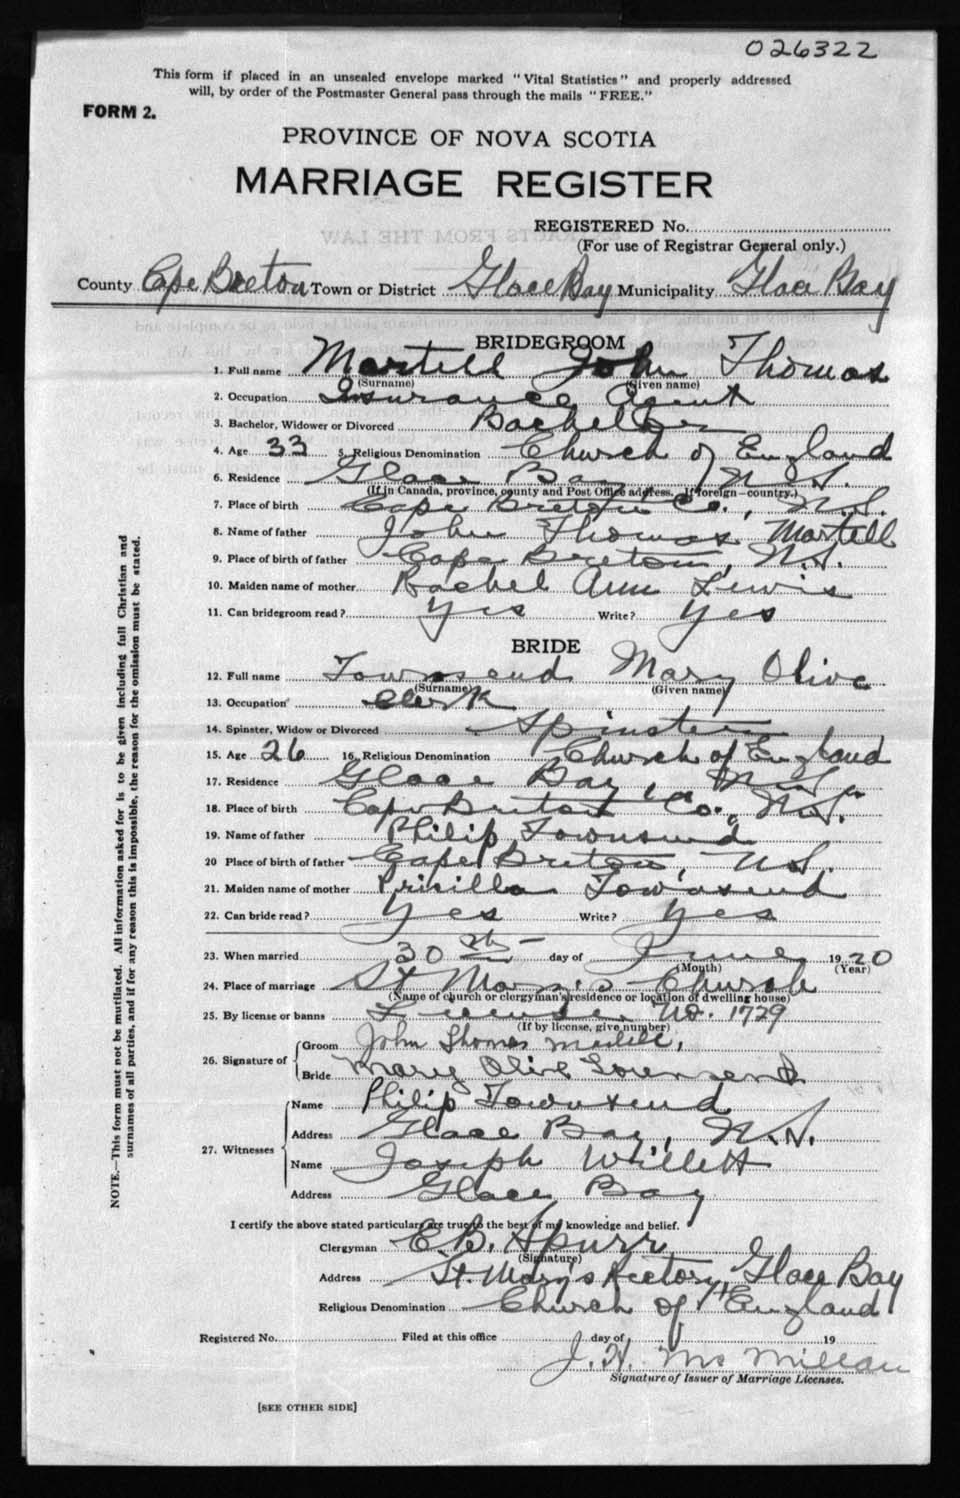 026322
This form if placed in an unsealed envelope marked "Vital Statistics" and properly addressed
will, by order of the Postmaster General pass through the mails "FREE."
FORM 2.
PROVINCE OF NOVA SCOTIA
MARRIAGE REGISTER
REGISTERED No.
(For use of Registrar General only.)
County Cape Breton Town or District Glace Bay Municipality Glace Bay
BRIDEGROOM
1. Full name Martell John Thomas
(Surname) (Given name)
2. Occupation Insurance Agent
3. Bachelor, Widower or Divorced Bachelor
4. Age 33 5. Religious Denomination Church of England
6. Residence Glace Bay, N.S.
(If in Canada, province, county and Post Office address. If foreign—country.)
7. Place of birth Cape Breton Co., N.S.
8. Name of father John Thomas Martell
9. Place of birth of father Cape Breton, N.S.
10. Maiden name of mother Rachel Ann Lewis
11. Can bridegroom read? Yes Write? Yes
BRIDE
12. Full name Townsend Mary Olive
(Surname) (Given name)
13. Occupation Clerk
14. Spinster, Widow or Divorced Spinster
15. Age 26 16. Religious Denomination Church of England
17. Residence Glace Bay, N.S.
18. Place of birth Cape Breton Co., N.S.
19. Name of father Philip Townsend
20 Place of birth of father Cape Breton, N.S.
21. Maiden name of mother Prisilla Townsend
22. Can bride read? Yes Write? Yes
23. When married 30th day of June 1920
(Month) (Year)
24. Place of marriage St Mary's Church
(Name of church or clergyman's residence or location of dwelling house)
25. By license or banns License No. 1729
(If by license, give number)
26. Signature of Groom John Thomas Martell,
Bride Mary Olive Townsend
27. Witnesses Name Philip Townsend
Address Glace Bay, N.S.
Name Joseph Willett
Address Glace Bay
I certify the above stated particulars are true to the best of my knowledge and belief.
Clergyman E.B. Spurr
(Signature)
Address St. Mary's Rectory, Glace Bay
Religious Denomination Church of England
Registered No. Filed at this office day of 19
J. H. McMillan
Signature of Issuer of Marriage Licenses.
[SEE OTHER SIDE]
NOTE.—This form must not be mutilated. All information asked for is to be given including full Christian and
surnames of all parties, and if for any reason this is impossible, the reason for the omission must be stated.